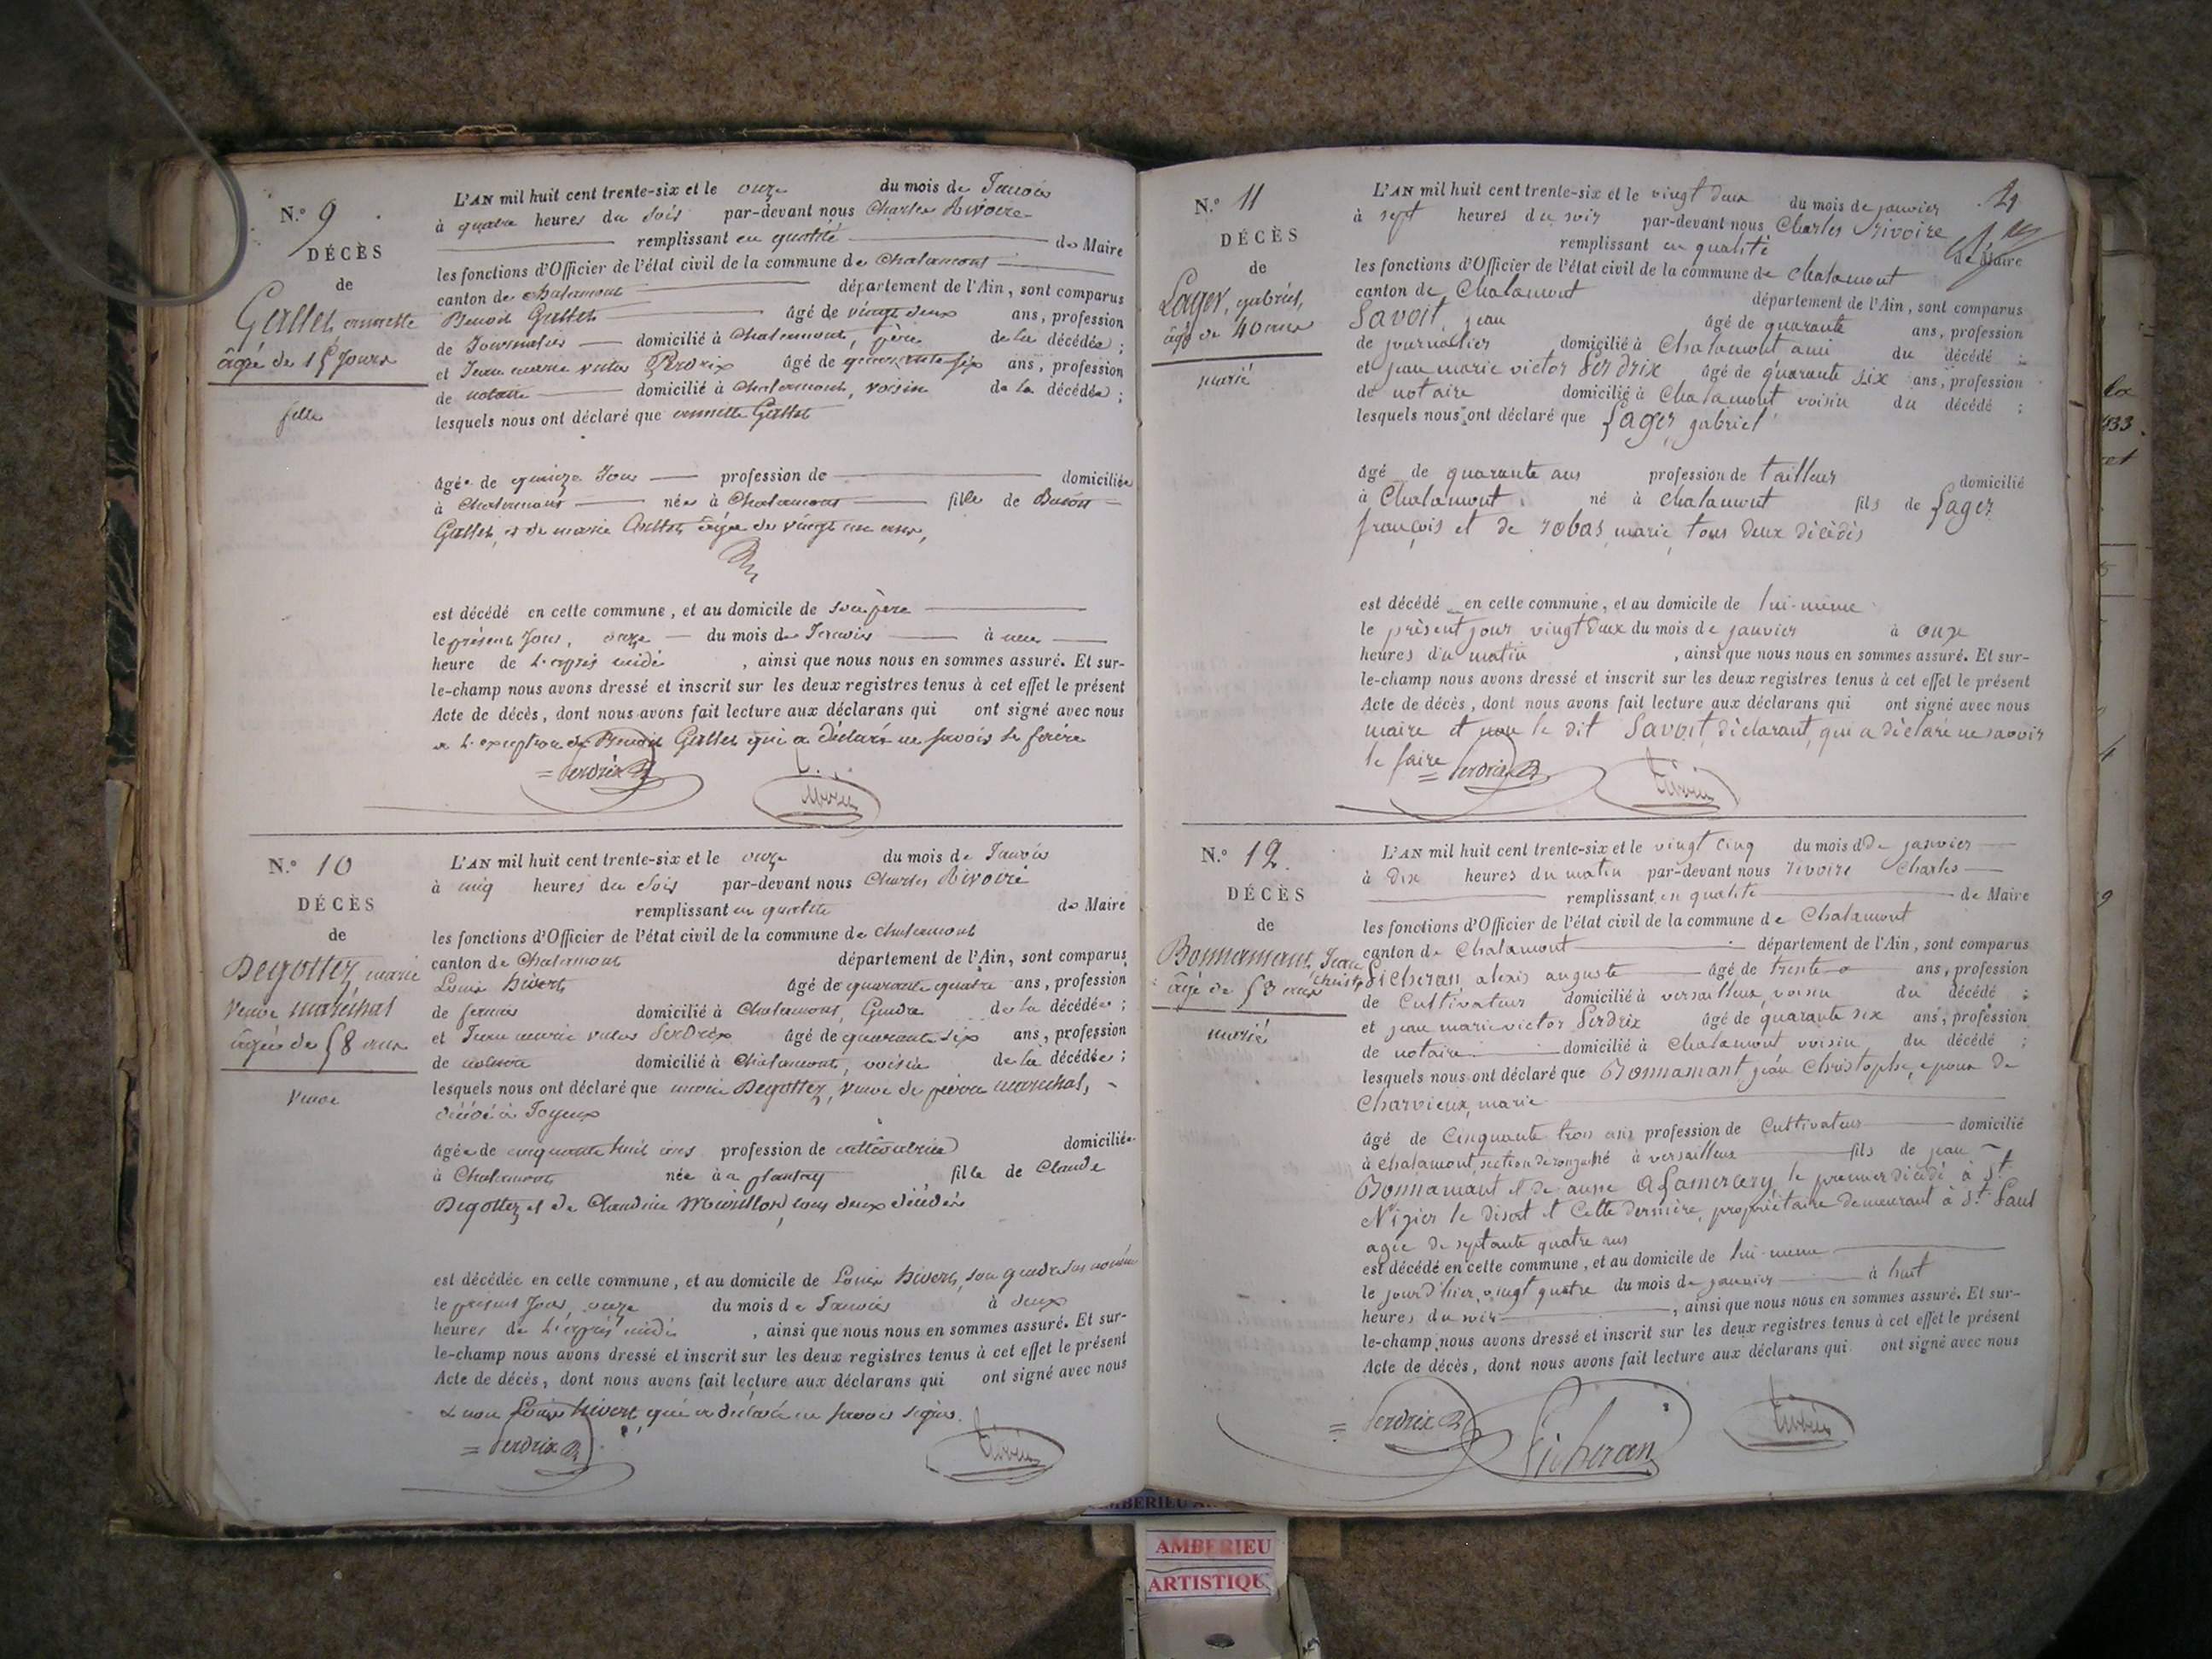 N.º 9
DÉCÈS
de
Gallet annette
âgée de 15 jours
fille
L'AN mil huit cent trente-six et le onze du mois de Janvier
à quatre heures du soir par-devant nous Charles Rivoire
remplissant en qualité de Maire
les fonctions d'Officier de l'état civil de la commune de Chalamont
canton de chalamont département de l'Ain, sont comparus
Benoit Gallet âgé de vingt deux ans, profession
de Journalier domicilié à Chalamont, père de la décédée ;
et Jean marie victor Perdrix âgé de quarante six ans, profession
de notaire domicilié à Chalamont, voisin de la décédée ;
lesquels nous ont déclaré que annette Gallet
âgée de quinze Jours profession de domiciliée
à Chalamont née à Chalamont fille de Benoit
Gallet, et de marie âgée de vingt un ans,
est décédé en cette commune, et au domicile de son père
le présent Jour, onze du mois de Janvier à une
heure de l'après midi , ainsi que nous nous en sommes assuré. Et sur-
le-champ nous avons dressé et inscrit sur les deux registres tenus à cet effet le présent
Acte de décès, dont nous avons fait lecture aux déclarans qui ont signé avec nous
a l'exception de Benoit Gallet qui a déclaré ne savoir le faire
= Perdrix
N.º 10
DÉCÈS
de
Degottez, marie
veuve maréchal
âgée de 58 ans
veuve
L'AN mil huit cent trente-six et le onze du mois de Janvier
à cinq heures du soir par-devant nous Charles Rivoire
remplissant en qualité de Maire
les fonctions d'Officier de l'état civil de la commune de chalamont
canton de Chalamont département de l'Ain, sont comparus
Louis hivert âgé de quarante quatre ans, profession
de fermier domicilié à Chalamont, Gendre de la décédée ;
et Jean marie victor Perdrix âgé de quarante six ans, profession
de notaire domicilié à Chalamont, voisin de la décédée ;
lesquels nous ont déclaré que marie Degottez, veuve de pierre maréchal,
décédé à Joyeux
âgée de cinquante huit ans profession de cultivatrice domiciliée
à Chalamont née à au plantay fille de Claude
Degottez et de Claudine tous deux décédés
est décédée en cette commune, et au domicile de Louis hivert, son gendre sus nommé
le présent Jour, onze du mois de Janvier à deux
heures de l'après midi , ainsi que nous nous en sommes assuré. Et sur-
le-champ nous avons dressé et inscrit sur les deux registres tenus à cet effet le présent
Acte de décès, dont nous avons fait lecture aux déclarans qui ont signé avec nous
& non Louis hivert, qui a déclaré ne savoir signer.
= Perdrix
N.º 11
DÉCÈS
de
Lager, gabriel,
âgé de 40 ans
marié
L'AN mil huit cent trente-six et le vingt deux du mois de janvier
à sept heures du soir par-devant nous Charles Rivoire
remplissant en qualité de Maire
les fonctions d'Officier de l'état civil de la commune de chalamont
canton de Chalamont département de l'Ain, sont comparus
Savoit, jean âgé de quarante ans, profession
de journalier domicilié à Chalamont ami du décédé ;
et jean marie victor Perdrix âgé de quarante six ans, profession
de notaire domicilié à Chalamont voisin du décédé ;
lesquels nous ont déclaré que Lager, gabriel
âgé de quarante ans profession de tailleur domicilié
à Chalamont né à chalamont fils de Lager
françois et de robas, marie, tous deux décédés
est décédé en cette commune, et au domicile de lui-même
le présent jour vingt deux du mois de janvier à onze
heures du matin , ainsi que nous nous en sommes assuré. Et sur-
le-champ nous avons dressé et inscrit sur les deux registres tenus à cet effet le présent
Acte de décès, dont nous avons fait lecture aux déclarans qui ont signé avec nous
maire et non le dit Savoit, déclarant, qui a déclaré ne savoir
le faire
= Perdrix
N.º 12
DÉCÈS
de
Bonnamant, Jean
christ
âgé de 53 ans
marié
L'AN mil huit cent trente-six et le vingt cinq du mois de janvier
à dix heures du matin par-devant nous rivoire Charles
remplissant en qualité de Maire
les fonctions d'Officier de l'état civil de la commune de Chalamont
canton de Chalamont département de l'Ain, sont comparus
Sicheran, alexis auguste âgé de trente ans, profession
de Cultivateur domicilié à versailleux, voisin du décédé ;
et jean marie victor Perdrix âgé de quarante six ans, profession
de notaire domicilié à Chalamont voisin du décédé ;
lesquels nous ont déclaré que Bonnamant, jean Christophe, epoux de
Charvieux, marie
âgé de Cinquante trois ans profession de Cultivateur domicilié
à chalamont, section de ronzuel né à versailleux fils de jean
Bonnamant et de anne le premier décédé à St.
Nizier le disert et Cette dernière, propriétaire demeurant à St. Paul
agée de septante quatre ans
est décédé en cette commune, et au domicile de lui-même
le jour d'hier, vingt quatre du mois de janvier à huit
heures du soir , ainsi que nous nous en sommes assuré. Et sur-
le-champ nous avons dressé et inscrit sur les deux registres tenus à cet effet le présent
Acte de décès, dont nous avons fait lecture aux déclarans qui ont signé avec nous
= Perdrix Sicheran
AMBERIEU
ARTISTIQUE